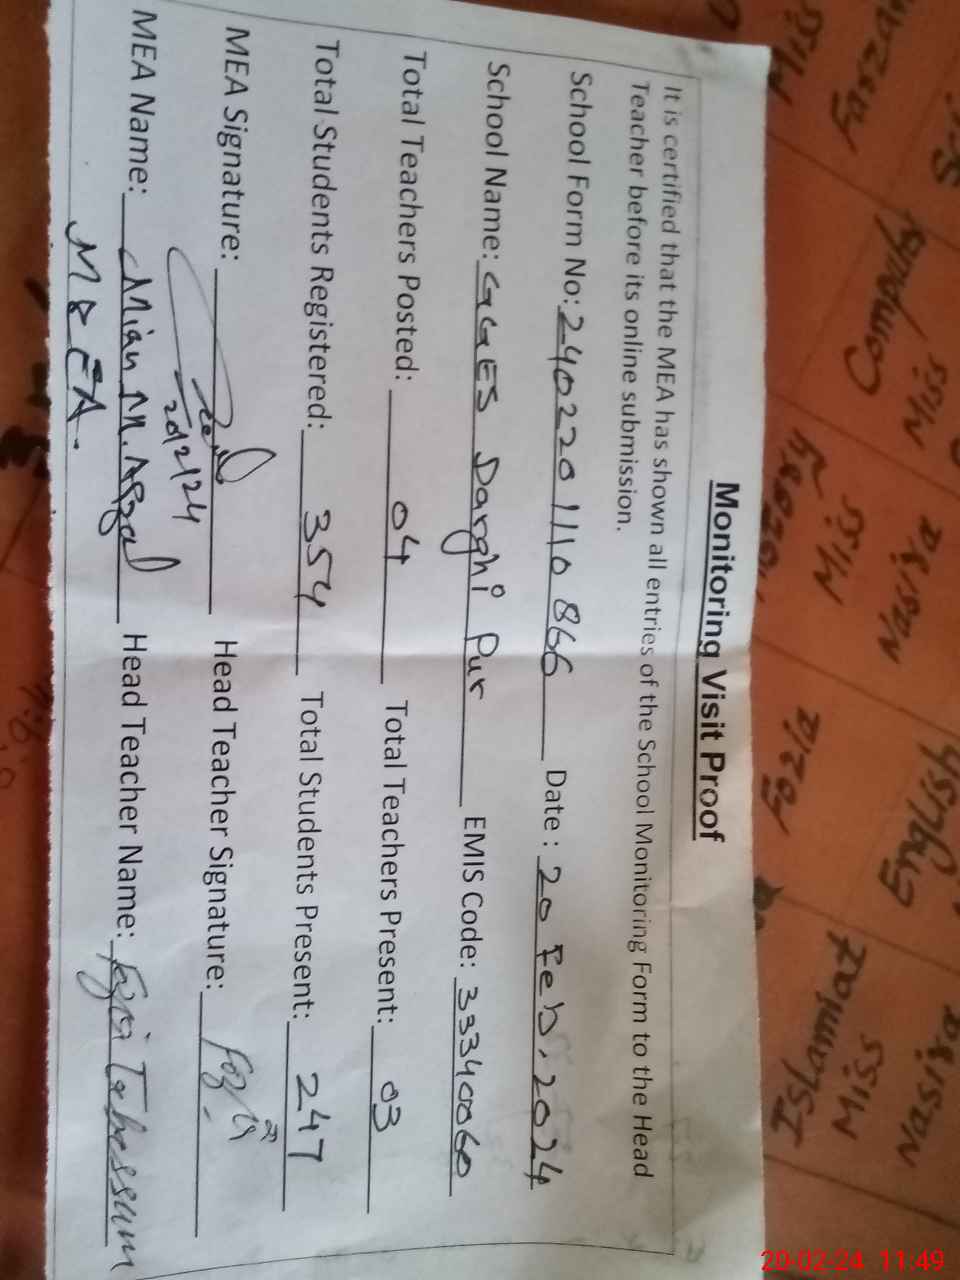 Monitoring Visit Proof
It is certified that the MEA has shown all entries of the School Monitoring Form to the Head
Teacher before its online submission.
School Form No: 240220 1110 866 Date : 20 Feb. 2024
School Name: GGES Darghi Pur EMIS Code: 33340060
Total Teachers Posted: 04 Total Teachers Present: 03
Total Students Registered: 354 Total Students Present: 247
MEA Signature: Head Teacher Signature: Fozia
MEA Name: Mian M. Afzal Head Teacher Name: Fozia Tabassum
Miss
Farzana
Miss
Miss
Nasira
Fozia
English
Islamiat
Miss
Nasira
20-02-24 11:49